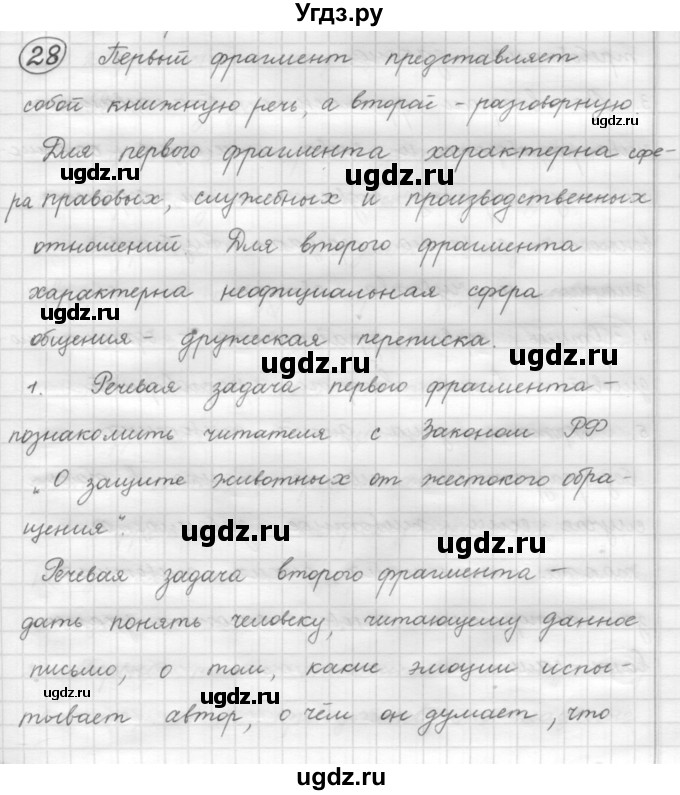 Угдз.ру
28 Первый фрагмент представляет
собой книжную речь, а второй - разговорную
ugdz.ru
Для первого фрагмента характерна сфе-
ugdz.ru ugdz.ru
ра правовых, служебных и производственных
отношений Для второго фрагмента
характерна неофициальная сфера
ugdz.ru
общения - дружеская переписка.
ugdz.ru ugdz.ru
1. Речевая задача первого фрагмента -
познакомить читателя с Законом РФ
„О защите животных от жестокого обра-
щения".
ugdz.ru ugdz.ru
Речевая задача второго фрагмента -
дать понять человеку, читающему данное
письмо, о том, какие эмоции испы-
ugdz.ru ugdz.ru
тывает автор, о чём он думает, что
ugdz.ru